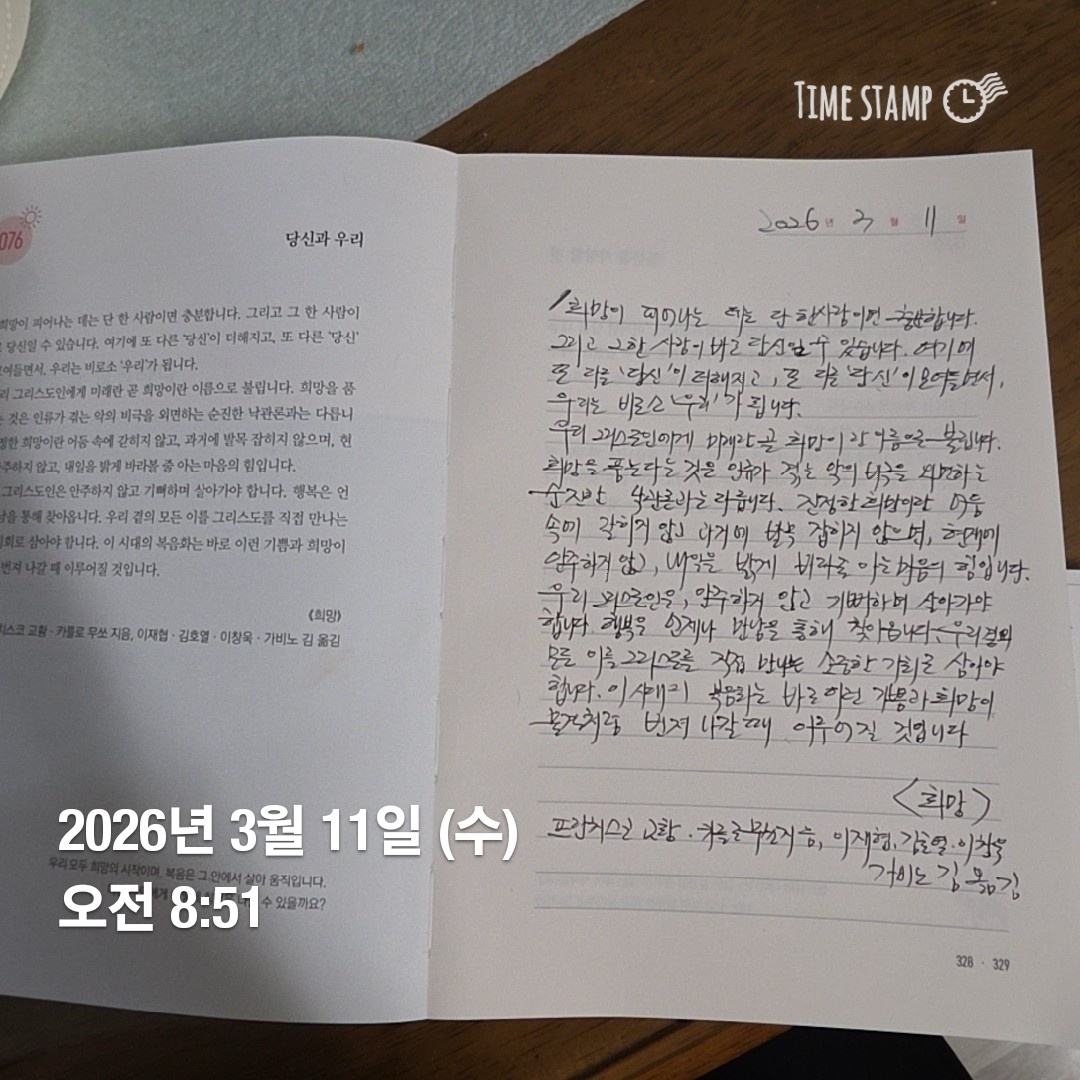 TIME STAMP
076
당신과 우리
희망이 피어나는 데는 단 한 사람이면 충분합니다. 그리고 그 한 사람이
당신일 수 있습니다. 여기에 또 다른 '당신'이 더해지고, 또 다른 '당신'
모여들면서, 우리는 비로소 '우리'가 됩니다.
리 그리스도인에게 미래란 곧 희망이란 이름으로 불립니다. 희망을 품
는 것은 인류가 겪는 악의 비극을 외면하는 순진한 낙관론과는 다릅니
정한 희망이란 어둠 속에 갇히지 않고, 과거에 발목 잡히지 않으며, 현
안주하지 않고, 내일을 밝게 바라볼 줄 아는 마음의 힘입니다.
그리스도인은 안주하지 않고 기뻐하며 살아가야 합니다. 행복은 언
남을 통해 찾아옵니다. 우리 곁의 모든 이를 그리스도를 직접 만나는
기회로 삼아야 합니다. 이 시대의 복음화는 바로 이런 기쁨과 희망이
번져 나갈 때 이루어질 것입니다.
《희망》
치스코 교황 · 카를로 무쏘 지음, 이재협 · 김호열 · 이창욱 · 가비노 김 옮김
우리 모두 희망의 시작이며, 복음은 그 안에서 살아 움직입니다.
수 있을까요?
2026년 3월 11일
희망이 피어나는 데는 단 한사람이면 충분합니다.
그리고 그한 사람이 바로 당신일 수 있습니다. 여기에
또 다른 '당신'이 더해지고, 또 다른 '당신'이 모여들면서,
우리는 비로소 '우리'가 됩니다.
우리 그리스도인에게 미래란 곧 희망이란 이름으로 불립니다.
희망을 품는다는 것은 인류가 겪는 악의 비극을 외면하는
순진한 낙관론과는 다릅니다. 진정한 희망이란 어둠
속에 갇히지 않고 과거에 발목 잡히지 않으며, 현재에
안주하지 않고, 내일을 밝게 바라볼 아는 마음의 힘입니다.
우리 그리스도인은, 안주하지 않고 기뻐하며 살아가야
합니다. 행복은 언제나 만남을 통해 찾아옵니다. 우리 곁의
모든 이를 그리스도를 직접 만나는 소중한 기회로 삼아야
합니다. 이 시대의 복음화는 바로 이런 기쁨과 희망이
번져 나갈 때 이루어질 것입니다
<희망>
프란치스코 교황 · 카를로 무쏘 지음, 이재협, 김호열 · 이창욱
가비노 김 옮김
328 · 329
2026년 3월 11일 (수)
오전 8:51